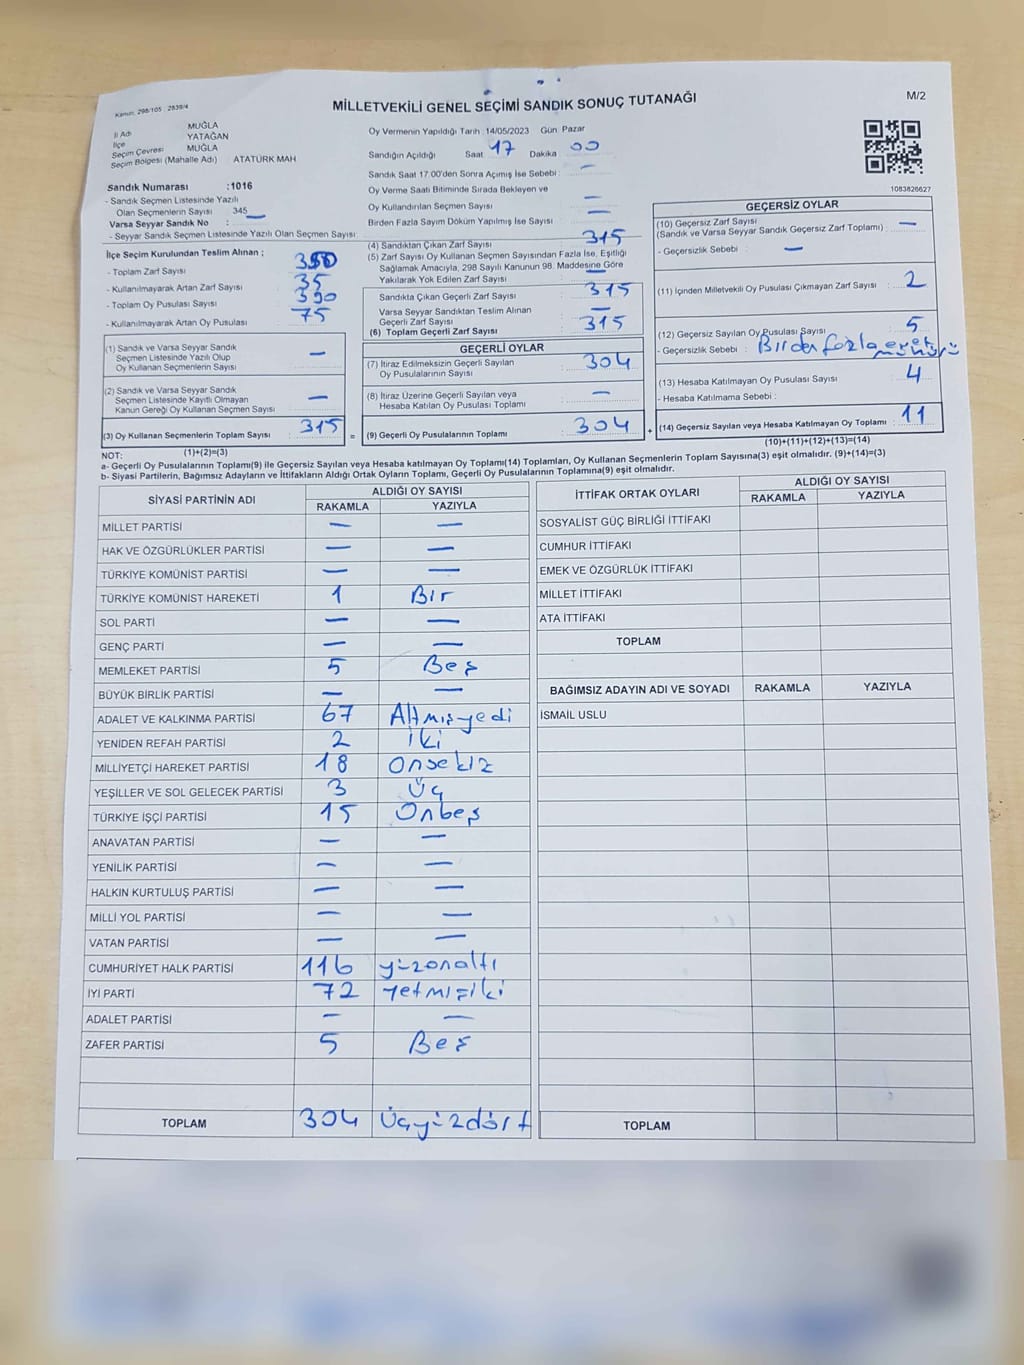 Kanun: 298/105 2839/4
MİLLETVEKİLİ GENEL SEÇİMİ SANDIK SONUÇ TUTANAĞI
M/2
İl Adı MUĞLA
İlçe YATAĞAN
Seçim Çevresi MUĞLA
Seçim Bölgesi (Mahalle Adı) ATATÜRK MAH
Oy Vermenin Yapıldığı Tarih :14/05/2023 Gün: Pazar
Sandığın Açıldığı Saat 17 Dakika 00
Sandık Saat 17:00'den Sonra Açımış İse Sebebi : —
Oy Verme Saati Bitiminde Sırada Bekleyen ve
Oy Kullandırılan Seçmen Sayısı —
Birden Fazla Sayım Döküm Yapılmış İse Sayısı : —
1083826627
Sandık Numarası :1016
- Sandık Seçmen Listesinde Yazılı
Olan Seçmenlerin Sayısı 345
Varsa Seyyar Sandık No :
- Seyyar Sandık Seçmen Listesinde Yazılı Olan Seçmen Sayısı
İlçe Seçim Kurulundan Teslim Alınan ;
- Toplam Zarf Sayısı
- Kullanılmayarak Artan Zarf Sayısı : 35
- Toplam Oy Pusulası Sayısı : 390
- Kullanılmayarak Artan Oy Pusulası : 75
(1) Sandık ve Varsa Seyyar Sandık
Seçmen Listesinde Yazılı Olup
Oy Kullanan Seçmenlerin Sayısı : —
(2) Sandık ve Varsa Seyyar Sandık
Seçmen Listesinde Kayıtlı Olmayan
Kanun Gereği Oy Kullanan Seçmen Sayısı : —
(3) Oy Kullanan Seçmenlerin Toplam Sayısı : 315
(1)+(2)=(3)
(4) Sandıktan Çıkan Zarf Sayısı : 315
(5) Zarf Sayısı Oy Kullanan Seçmen Sayısından Fazla İse, Eşitliği
Sağlamak Amacıyla, 298 Sayılı Kanunun 98. Maddesine Göre
Yakılarak Yok Edilen Zarf Sayısı : —
Sandıkta Çıkan Geçerli Zarf Sayısı : 315
Varsa Seyyar Sandıktan Teslim Alınan
Geçerli Zarf Sayısı : —
(6) Toplam Geçerli Zarf Sayısı : 315
GEÇERLİ OYLAR
(7) İtiraz Edilmeksizin Geçerli Sayılan
Oy Pusulalarının Sayısı : 304
(8) İtiraz Üzerine Geçerli Sayılan veya
Hesaba Katılan Oy Pusulası Toplamı : —
= (9) Geçerli Oy Pusulalarının Toplamı : 304 +
GEÇERSİZ OYLAR
(10) Geçersiz Zarf Sayısı
(Sandık ve Varsa Seyyar Sandık Geçersiz Zarf Toplamı) : —
- Geçersizlik Sebebi : —
(11) İçinden Milletvekili Oy Pusulası Çıkmayan Zarf Sayısı : 2
(12) Geçersiz Sayılan Oy Pusulası Sayısı : 5
- Geçersizlik Sebebi : Birden fazla evet mührü
(13) Hesaba Katılmayan Oy Pusulası Sayısı : 4
- Hesaba Katılmama Sebebi :
(14) Geçersiz Sayılan veya Hesaba Katılmayan Oy Toplamı : 11
(10)+(11)+(12)+(13)=(14)
NOT:
a- Geçerli Oy Pusulalarının Toplamı(9) ile Geçersiz Sayılan veya Hesaba katılmayan Oy Toplamı(14) Toplamları, Oy Kullanan Seçmenlerin Toplam Sayısına(3) eşit olmalıdır. (9)+(14)=(3)
b- Siyasi Partilerin, Bağımsız Adayların ve İttifakların Aldığı Ortak Oyların Toplamı, Geçerli Oy Pusulalarının Toplamına(9) eşit olmalıdır.
SİYASİ PARTİNİN ADI ALDIĞI OY SAYISI
RAKAMLA YAZIYLA
MİLLET PARTİSİ — —
HAK VE ÖZGÜRLÜKLER PARTİSİ — —
TÜRKİYE KOMÜNİST PARTİSİ — —
TÜRKİYE KOMÜNİST HAREKETİ 1 Bir
SOL PARTİ — —
GENÇ PARTİ — —
MEMLEKET PARTİSİ 5 Beş
BÜYÜK BİRLİK PARTİSİ — —
ADALET VE KALKINMA PARTİSİ 67 Altmışyedi
YENİDEN REFAH PARTİSİ 2 iki
MİLLİYETÇİ HAREKET PARTİSİ 18 Onsekiz
YEŞİLLER VE SOL GELECEK PARTİSİ 3 Üç
TÜRKİYE İŞÇİ PARTİSİ 15 Onbeş
ANAVATAN PARTİSİ — —
YENİLİK PARTİSİ — —
HALKIN KURTULUŞ PARTİSİ — —
MİLLİ YOL PARTİSİ — —
VATAN PARTİSİ — —
CUMHURİYET HALK PARTİSİ 116 yüzonaltı
İYİ PARTİ 72 yetmişiki
ADALET PARTİSİ — —
ZAFER PARTİSİ 5 Beş
TOPLAM 304 Üçyüzdört
İTTİFAK ORTAK OYLARI ALDIĞI OY SAYISI
RAKAMLA YAZIYLA
SOSYALİST GÜÇ BİRLİĞİ İTTİFAKI
CUMHUR İTTİFAKI
EMEK VE ÖZGÜRLÜK İTTİFAKI
MİLLET İTTİFAKI
ATA İTTİFAKI
TOPLAM
BAĞIMSIZ ADAYIN ADI VE SOYADI RAKAMLA YAZIYLA
İSMAİL USLU
TOPLAM